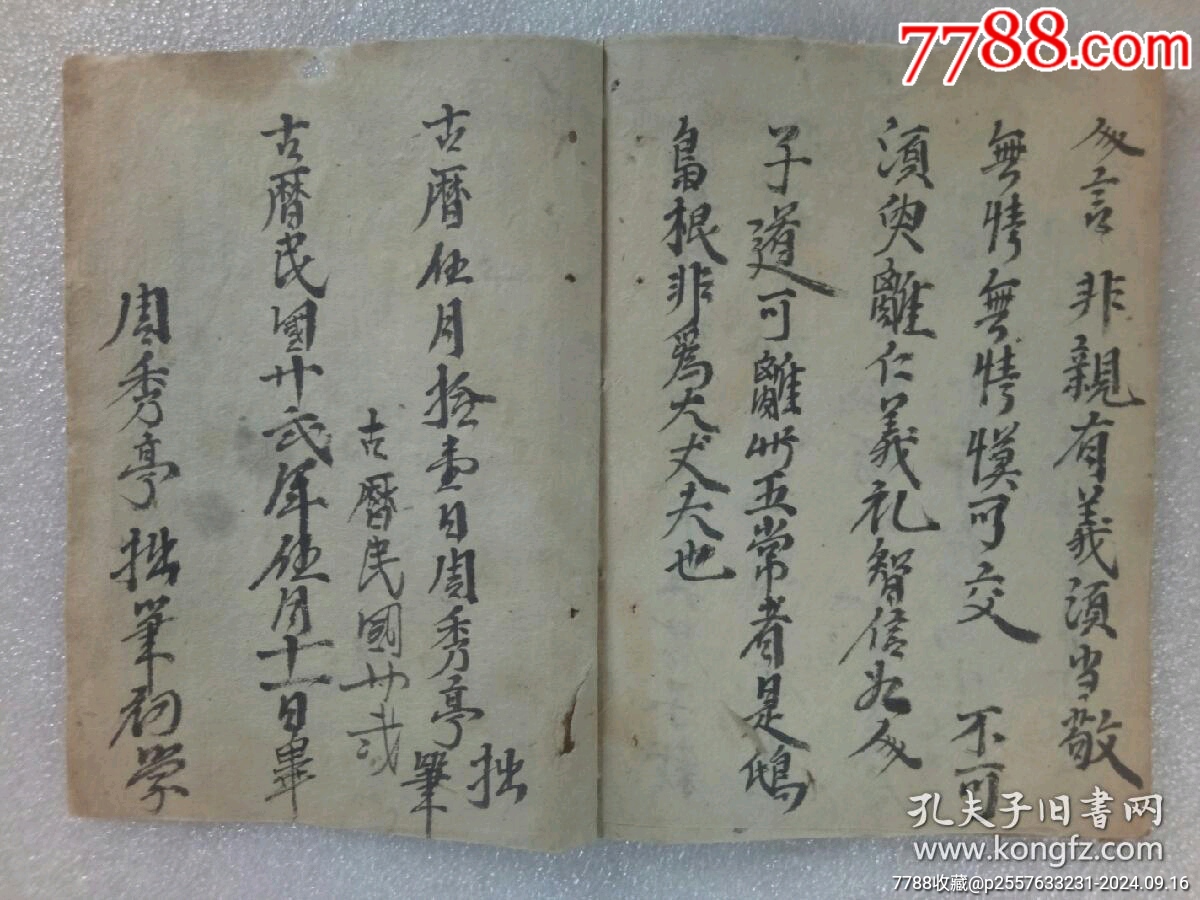 7788.com
言非親有義須当敬
無情無情慔可交 不可
須臾離仁義礼智信
子道可離卅五常者是鴟
梟根非爲大丈夫也
古曆伍月拾壹日周秀亭拙筆
古曆民國廿弍
古曆民國廿弍年伍月十一日畢
周秀亭拙筆初学
孔夫子旧书网
www.kongfz.com
7788收藏@p2557633231-2024.09.16